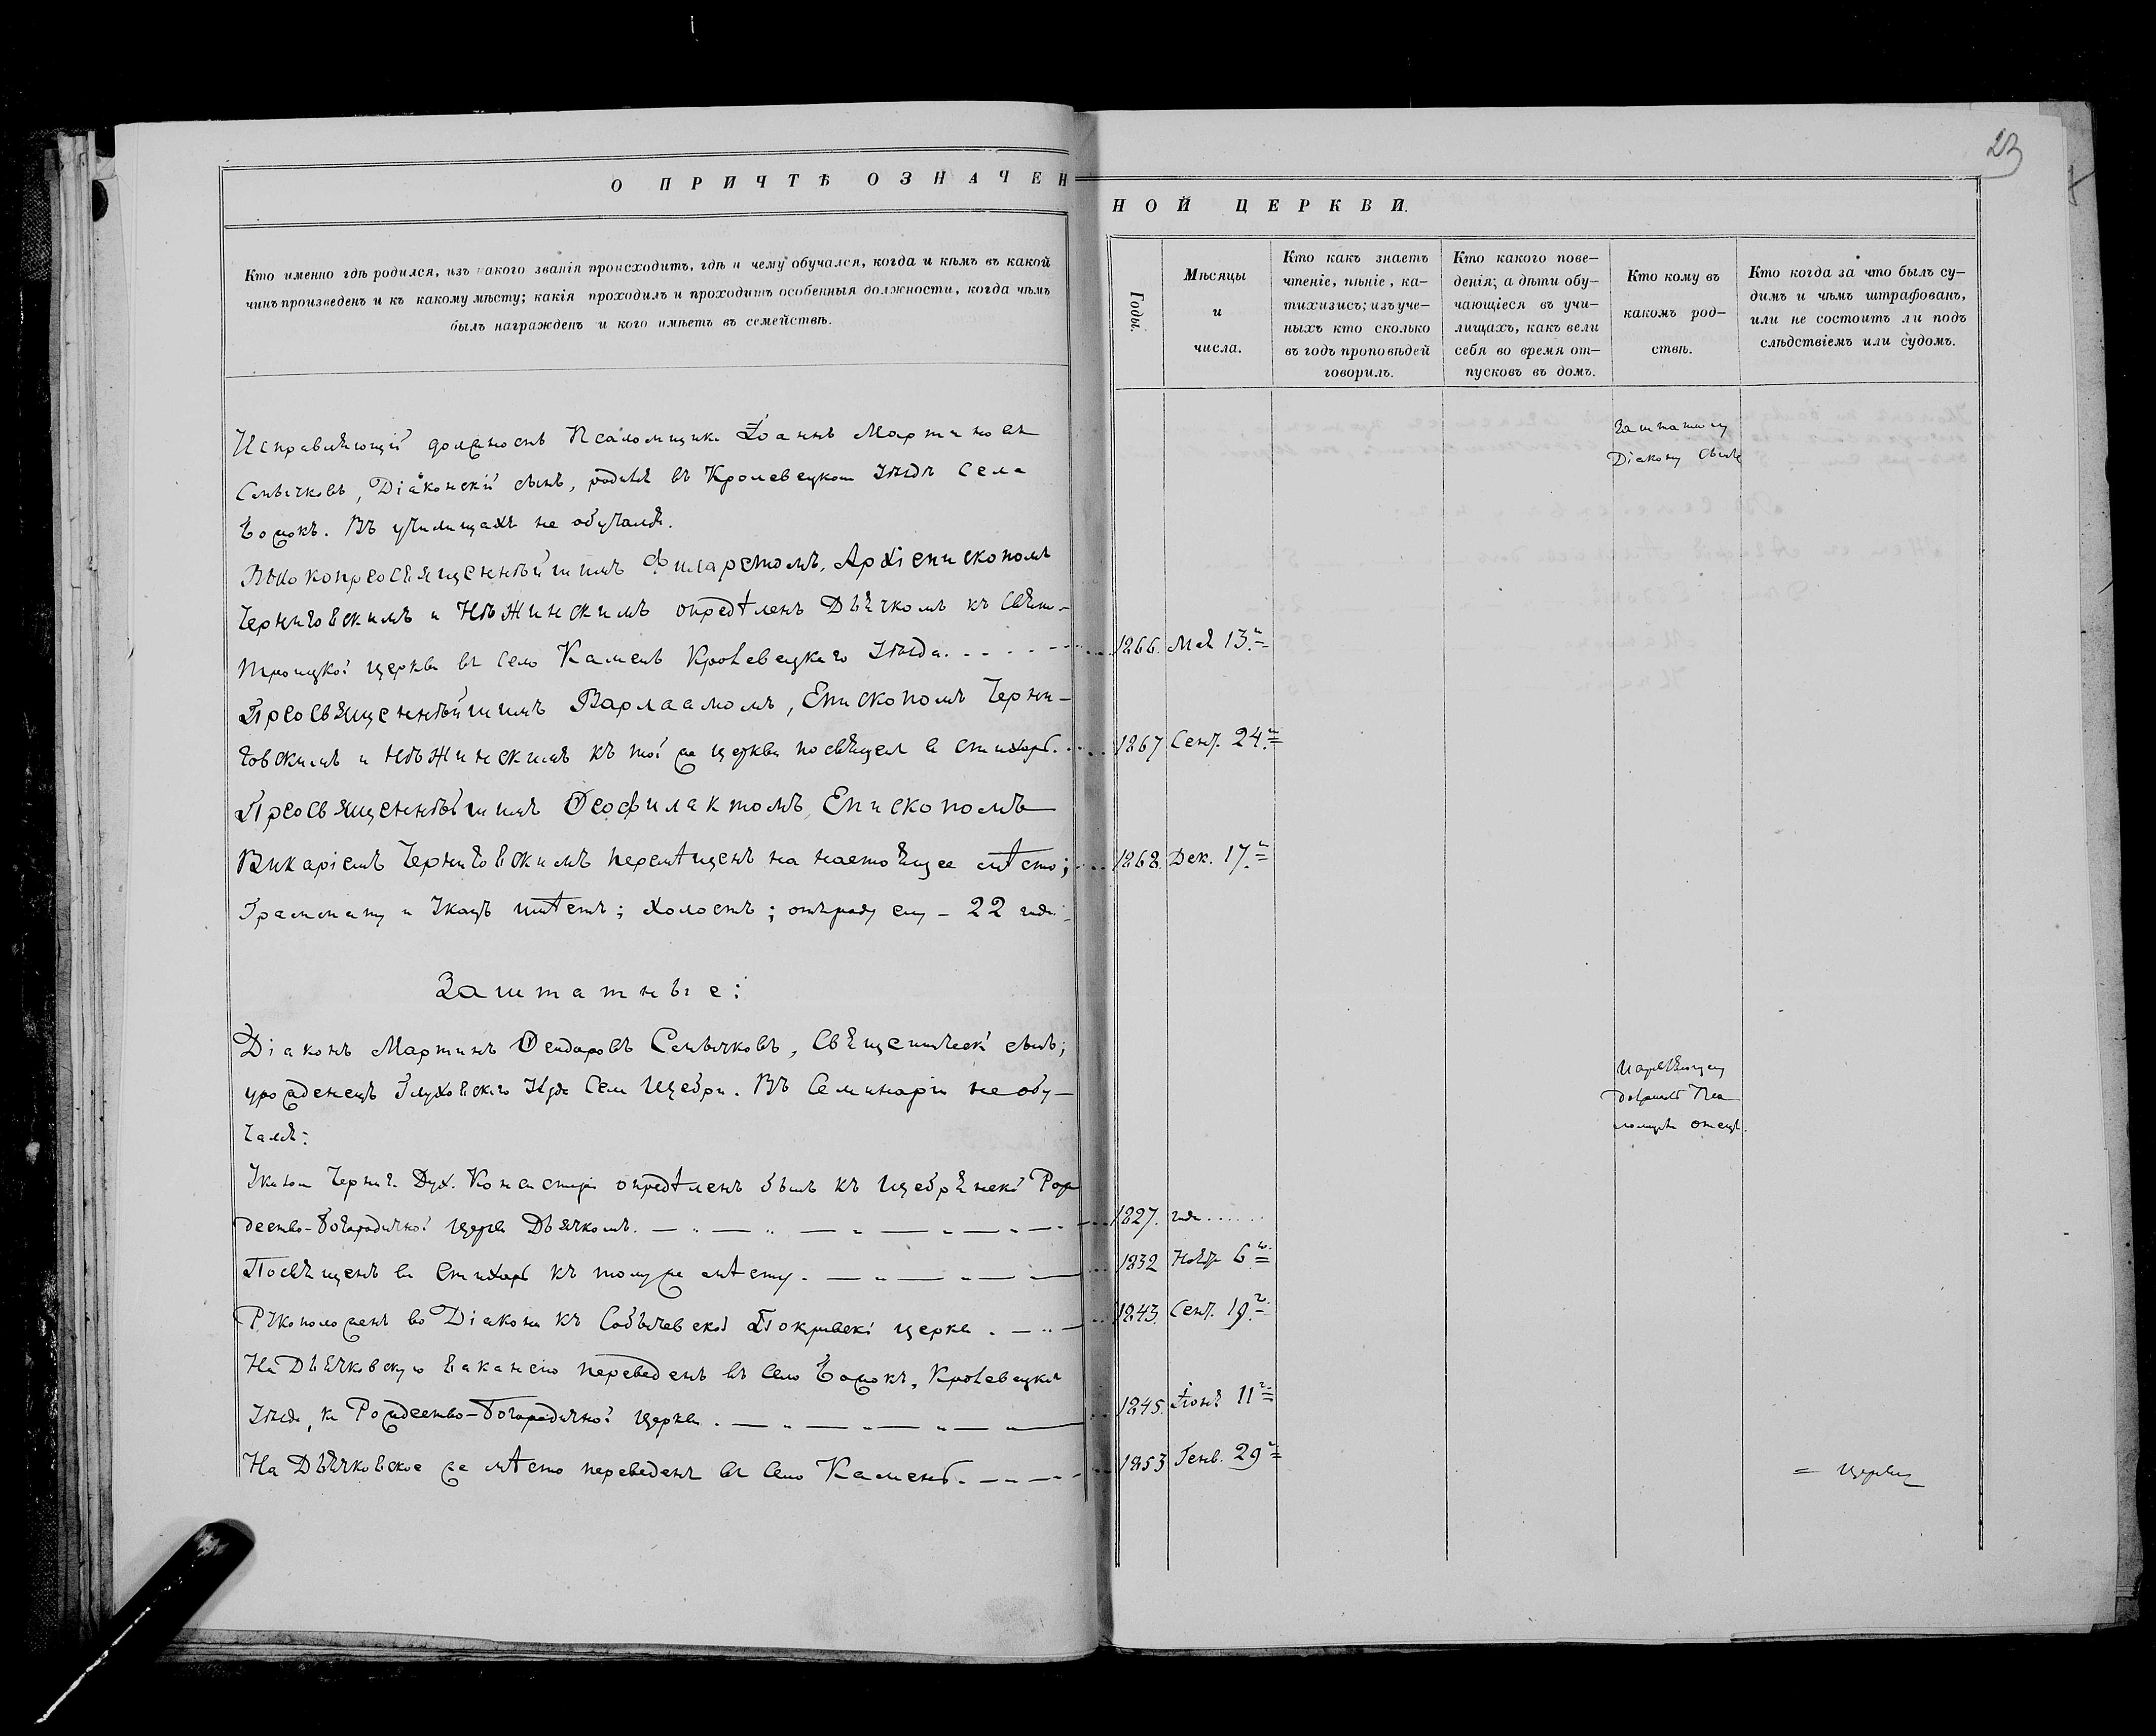 23
О ПРИЧТѢ ОЗНАЧЕННОЙ ЦЕРКВИ.
Кто именно гдѣ родился, изъ какого званія происходитъ, гдѣ и чему обучался, когда и кѣмъ въ какой
чинъ произведенъ и къ какому мѣсту; какія проходилъ и проходитъ особенныя должности, когда чѣмъ
былъ награжденъ и кого имѣетъ въ семействѣ.
Годы.
Мѣсяцы
и
числа.
Кто какъ знаетъ
чтеніе, пѣніе, ка–
тихизисъ; изъ уче–
ныхъ кто сколько
въ годъ проповѣдей
говорилъ.
Кто какого пове–
денія; а дѣти обу–
чающіеся въ учи–
лищахъ, какъ вели
себя во время от–
пусковъ въ домъ.
Кто кому въ
какомъ род–
ствѣ.
Кто когда за что былъ су–
димъ и чѣмъ штрафованъ,
или не состоитъ ли подъ
слѣдствіемъ или судомъ.
Исправляющій должность Псаломщика Іоаннъ Мартиновъ
Діаконскій сынъ, родился въ Кролевецкомъ Уѣздѣ Села
Въ училищахъ не обучался.
Заштатному
Діакону сынъ
Высокопреосвященнѣйшимъ Филаретомъ, Архіепископомъ
Черниговскимъ и Нѣжинскимъ опредѣленъ Дьячкомъ къ Свят–
троицкой церкви въ село Камень Кролевецкаго Уѣзда. 1866. Мая 13.
Преосвященнѣйшимъ Варлаамомъ, Епископомъ Черни–
говскимъ и Нѣжинскимъ къ той же церкви посвященъ въ стихарь. 1867 Сент. 24.
Преосвященнѣйшимъ Ѳеофилактомъ, Епископомъ
Викаріемъ Черниговскимъ перемѣщенъ на настоящее мѣсто; 1868. Дек. 17.
Граммату и Указъ имѣетъ; холостъ; отъ роду ему – 22 года
Заштатные:
Діаконъ Мартинъ Ѳеодоровъ Священническій сынъ;
уроженецъ Глуховскаго Уѣзда Села Щебри. Въ Семинаріи не обу–
чался:
отецъ.
Указомъ Черниг. Дух. Консисторіи опредѣленъ былъ къ Щебрянской Рож
дество–Богородичной церкви Дьячкомъ. 1827. года
Посвященъ въ Стихарь къ тому же мѣсту. 1832 Ноябр. 6
Рукоположенъ во Діакона къ Собычевской Покровской церкви. 1843. Сент. 19.
На Дьячковскую вакансію переведенъ въ село Кролевецкаго
Уѣзда, къ Рождество–Богородичной церкви. 1845. Іюня 11
На Дьячковское же мѣсто переведенъ въ село Камень. 1853 Генв. 29